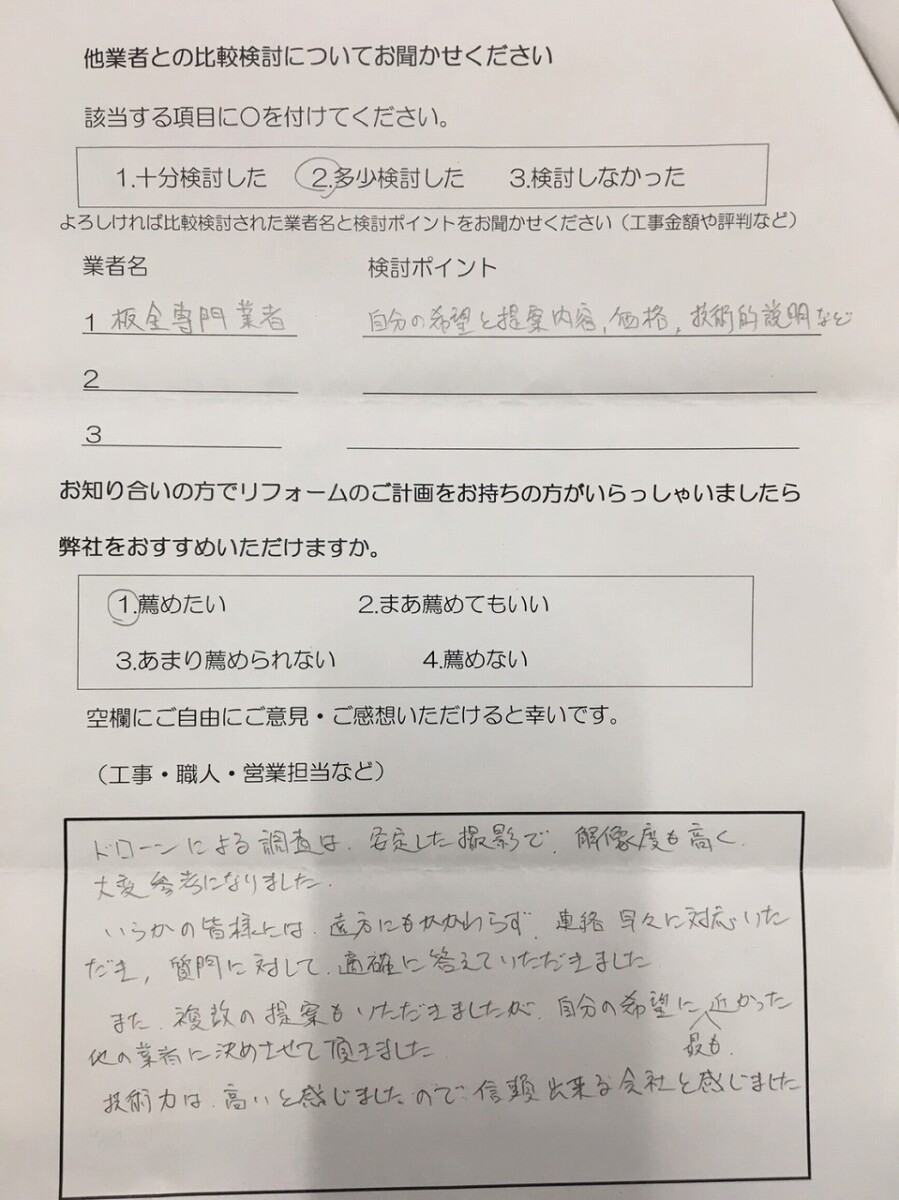 他業者との比較検討についてお聞かせください
該当する項目に〇を付けてください。
1.十分検討した 2.多少検討した 3.検討しなかった
よろしければ比較検討された業者名と検討ポイントをお聞かせください（工事金額や評判など）
業者名 検討ポイント
1 板金専門業者 自分の希望と提案内容，価格，技術的説明など
2
3
お知り合いの方でリフォームのご計画をお持ちの方がいらっしゃいましたら
弊社をおすすめいただけますか。
1.薦めたい 2.まあ薦めてもいい
3.あまり薦められない 4.薦めない
空欄にご自由にご意見・ご感想いただけると幸いです。
（工事・職人・営業担当など）
ドローンによる調査は、安定した撮影で、解像度も高く、
大変参考になりました。
いらかの皆様には、遠方にもかかわらず、連絡早々に対応いた
だき，質問に対して、適確に答えていただきました
また、複数の提案もいただきましたが、自分の希望に最も近かった
他の業者に決めさせて頂きました
技術力は、高いと感じましたので信頼出来る会社と感じました